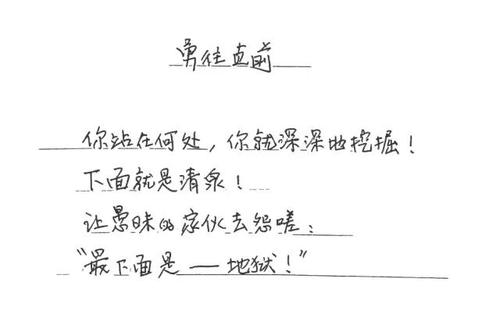 勇往直前
你站在何处，你就深深地挖掘！
下面就是清泉！
让愚昧的家伙去怨嗟：
“最下面是——地狱！”